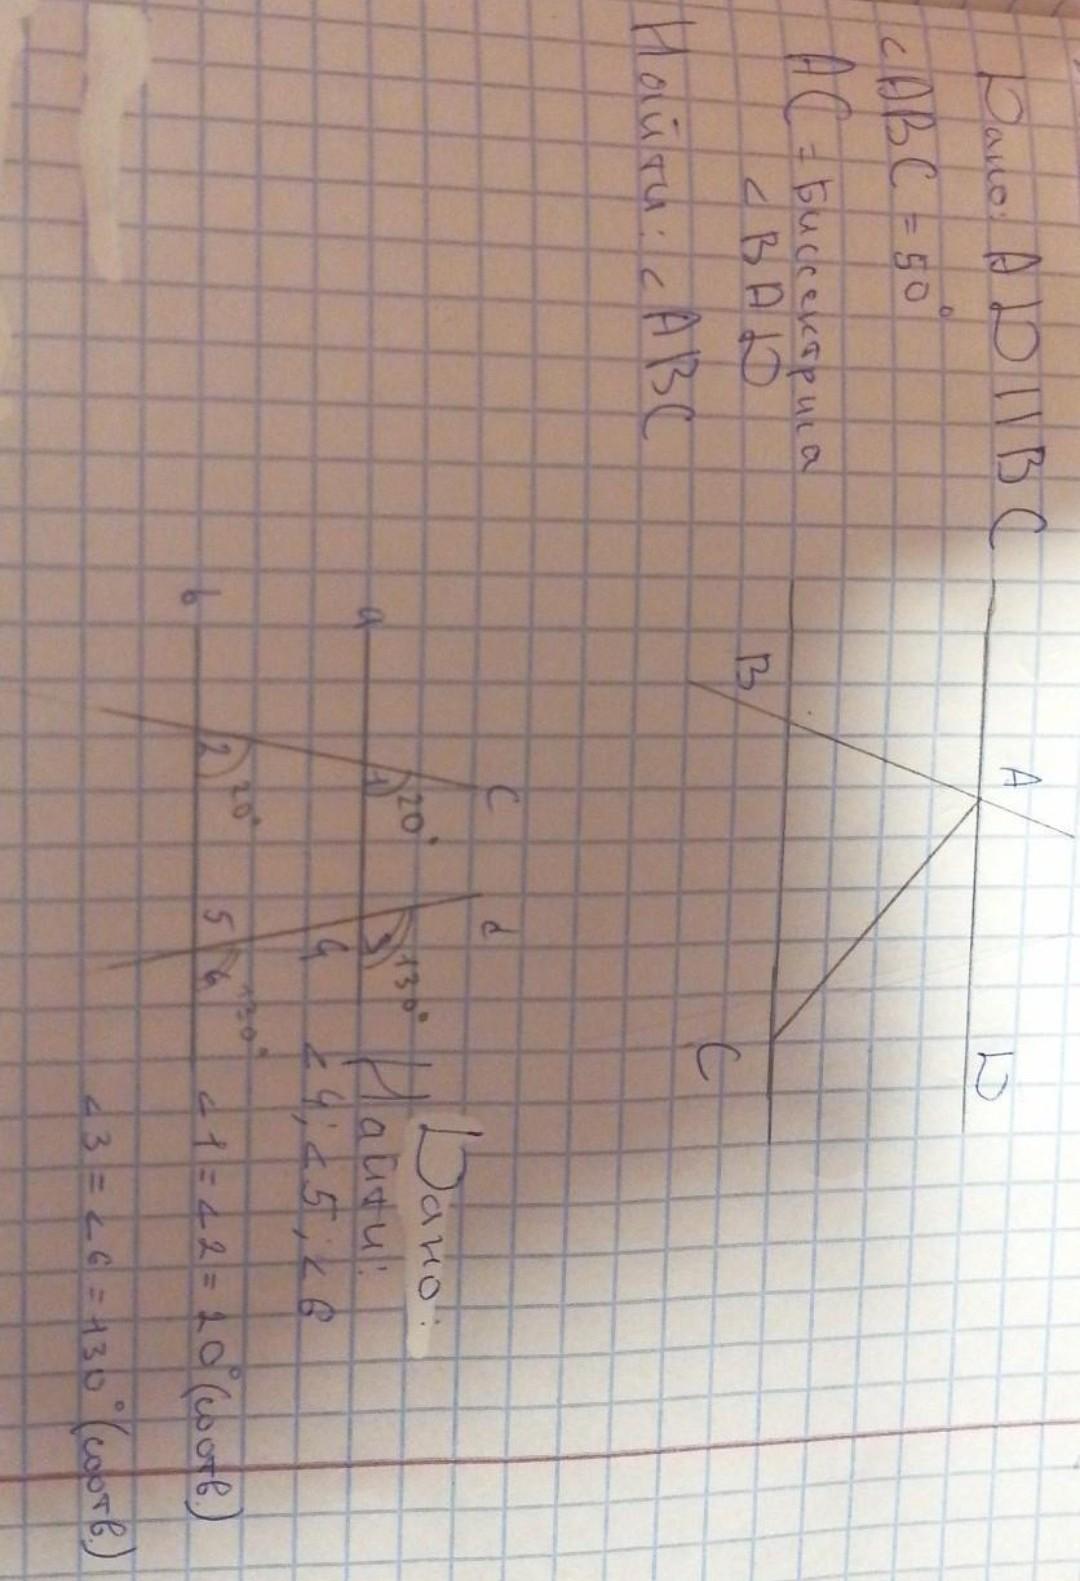 Дано: AD || BC
<ABC = 50°
AC = биссектриса
<BAD
Найти: <ABC
A
D
B
C
c
d
20°
130°
a
1
3
4
20°
130°
b
2
5
6
Дано:
Найти:
<4; <5; <6
<1 = <2 = 20° (соотв.)
<3 = <6 = 130° (соотв.)